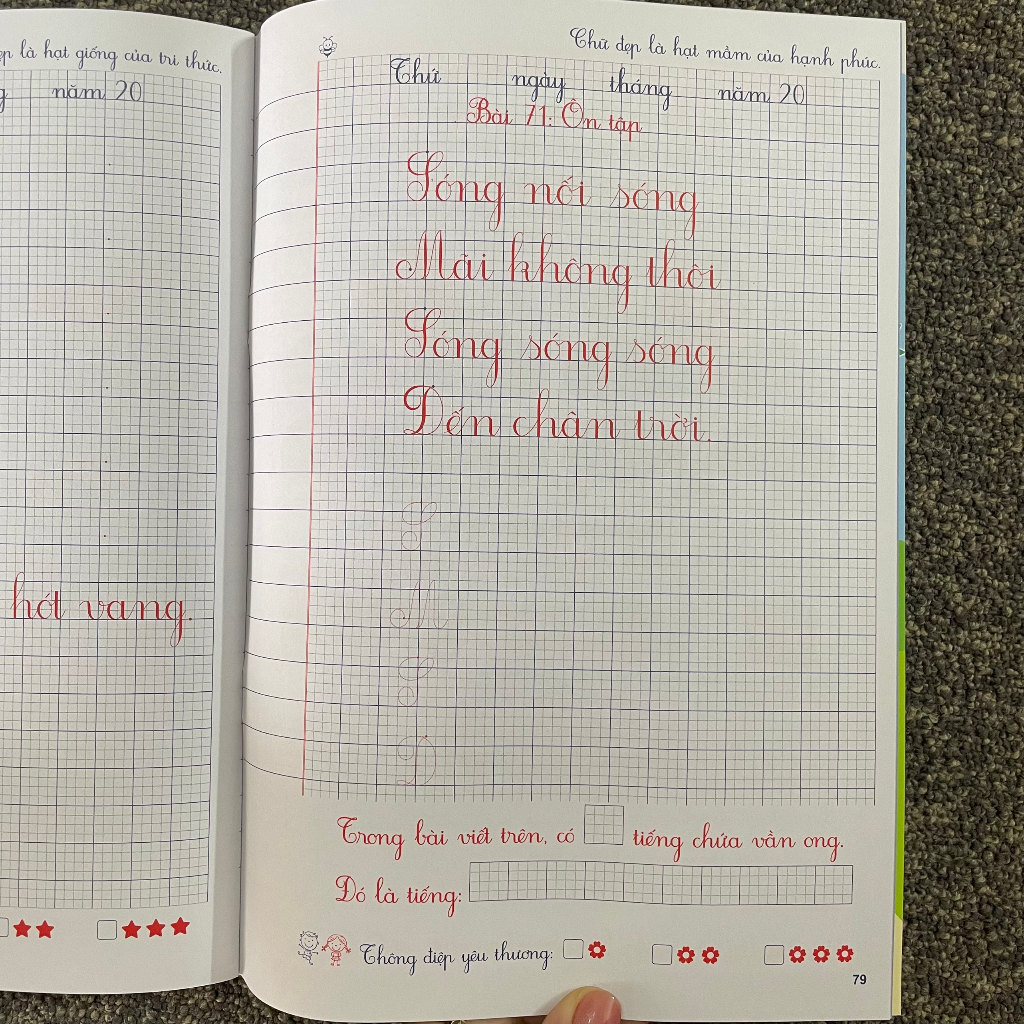 ẹp là hạt giống của tri thức.
g năm 20
hót vang.
Chữ đẹp là hạt mầm của hạnh phúc.
Thứ ngày tháng năm 20
Bài 71: Ôn tập
Sóng nối sóng
Mãi không thôi
Sóng sóng sóng
Đến chân trời.
S
M
S
Đ
Trong bài viết trên, có tiếng chứa vần ong.
Đó là tiếng:
Thông điệp yêu thương:
79